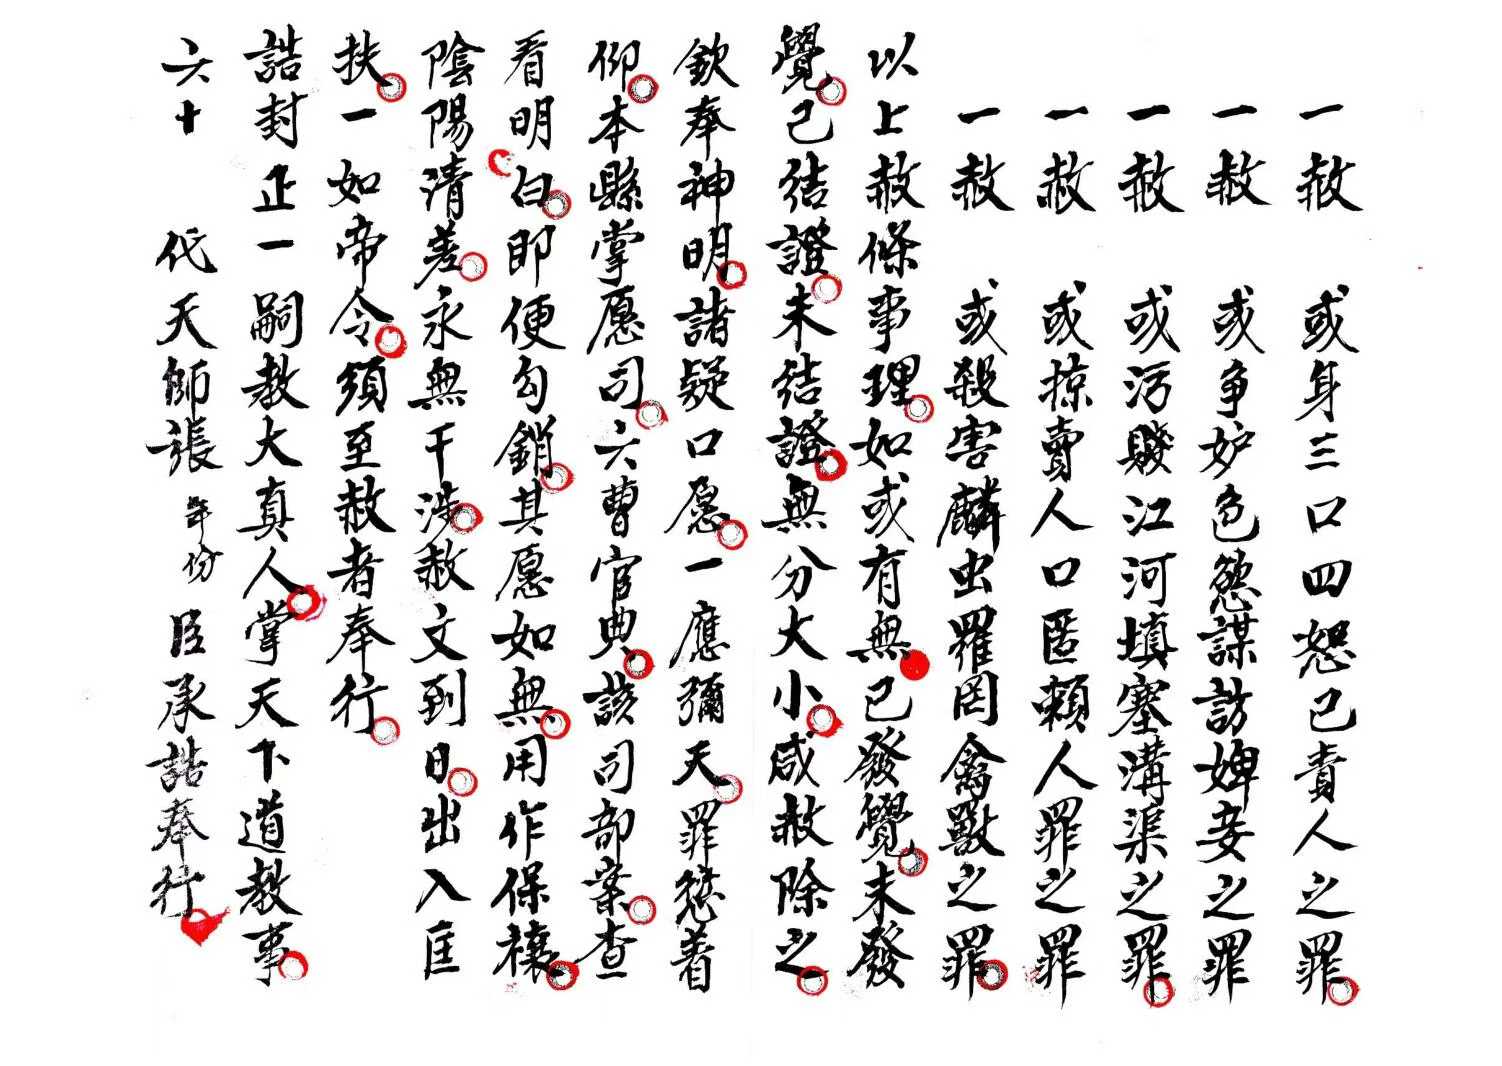 一赦　或身三口四恕己責人之罪
一赦　或争妒色慾謀訪婢妾之罪
一赦　或污賤江河填塞溝渠之罪
一赦　或掠賣人口匿賴人罪之罪
一赦　或殺害麟虫羅罔禽獸之罪
以上赦條事理如或有無已發覺未發
覺己结證未结證無分大小咸赦除之
欽奉神明諸疑口愿一應彌天罪愆着
仰本縣掌愿司六曹官典該司部案查
看明白即便勾銷其愿如無用作保禳
陰陽清差永無干涉赦文到日出入匡
扶一如帝令須至赦者奉行
誥封正一嗣教大真人掌天下道教事
六十　代天師張年份臣承誥奉行